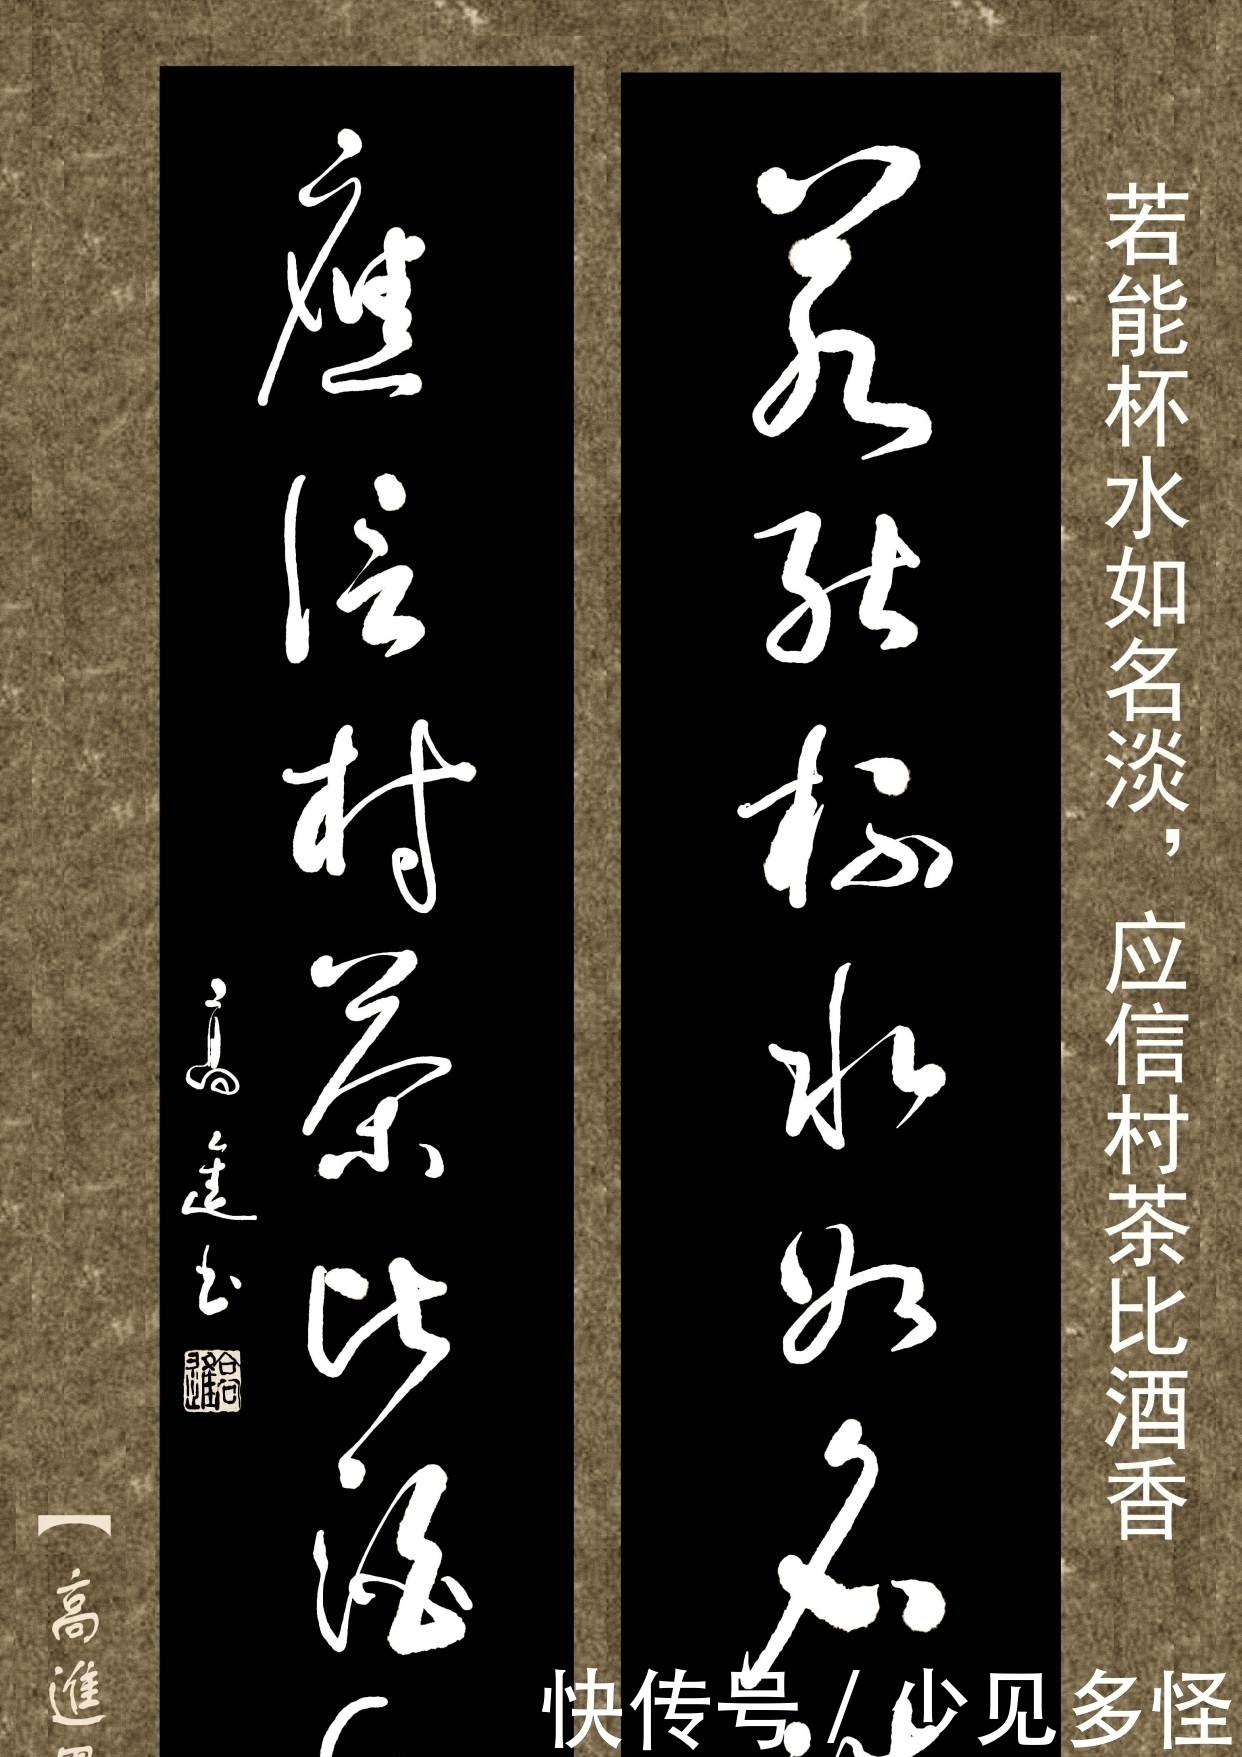 若能杯水如名淡，应信村茶比酒香
若能杯水如名
應信村茶比酒
高進书
【高進
快传号/少见多怪